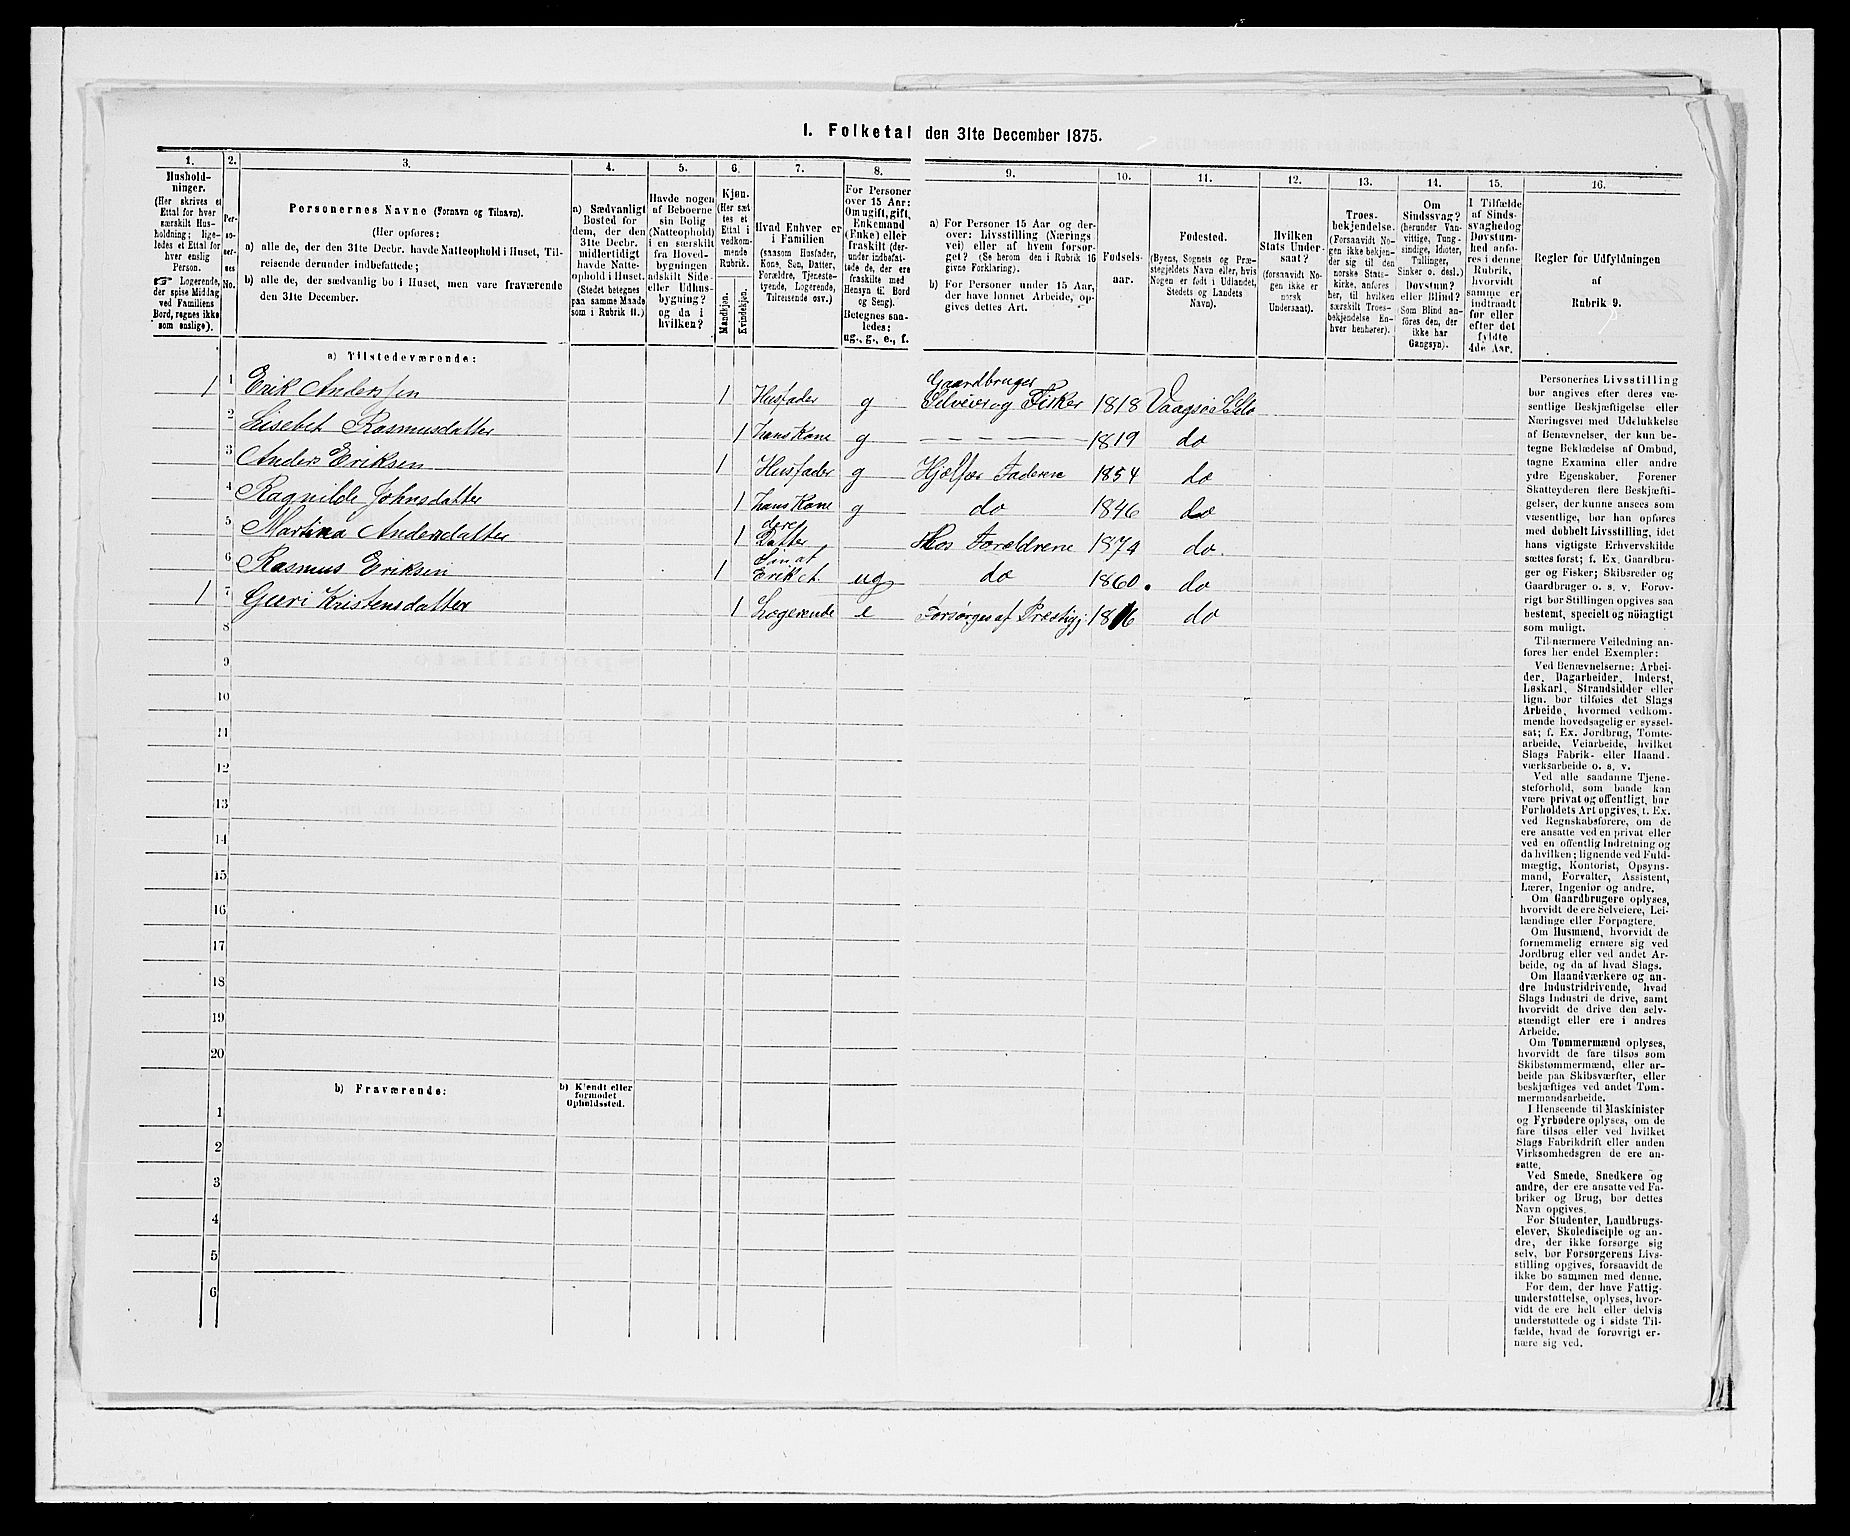 I. Folketal den 31te December 1875.
1.
Hushold-
ninger.
(Her skrives et
Ettal for hver
særskilt Hus-
holdning; lige-
ledes et Ettal for
hver enslig
Person.
☞ Logerende,
der spise Middag
ved Familiens
Bord, regnes ikke
som enslige).
2.
Per-
so-
ner-
nes
No.
3.
Personernes Navne (Fornavn og Tilnavn).
(Her opføres:
a) alle de, der den 31te Decbr. havde Natteophold i Huset, Til-
reisende derunder indbefattede;
b) alle de, der sædvanlig bo i Huset, men vare fraværende
den 31te December.
4.
a) Sædvanligt
Bosted for
dem, der den
31te Decbr.
midlertidigt
havde Natte-
ophold i Huset.
(Stedet betegnes
paa samme Maade
som i Rubrik 11.)
5.
Havde nogen
af Beboerne
sin Bolig
(Natteophold)
i en særskilt
fra Hoved-
bygningen
adskilt Side-
eller Udhus-
bygning?
og da i
hvilken?
6.
Kjøn.
(Her sæt-
tes et
Ettal i
vedkom-
mende
Rubrik.
Mandkjøn.
Kvindekjøn.
7.
Hvad Enhver er
i Familien
(saasom Husfader,
Kone, Søn, Datter,
Forældre, Tjeneste-
tyende, Logerende,
Tilreisende osv.)
8.
For Personer
over 15 Aar:
Om ugift, gift,
Enkemand
(Enke) eller
fraskilt (der-
under indbefat-
tede de, der ere
fraskilte med
Hensyn til Bord
og Seng).
Betegnes saa-
ledes:
ug., g., e., f.
9.
a) For Personer 15 Aar og der-
over: Livsstilling (Nærings
vei) eller af hvem forsør-
get? (Se herom den i Rubrik 16
givne Forklaring).
b) For Personer under 15 Aar,
der have lønnet Arbeide, op-
gives dettes Art.
10.
Fødsels-
aar.
11.
Fødested.
(Byens, Sognets og Præ-
stegjeldets Navn eller, hvis
Nogen er født i Udlandet,
Stedets og Landets
Navn).
12.
Hvilken
Stats Under-
saat?
(forsaavidt No-
gen ikke er
norsk
Undersaat).
13.
Troes-
bekjendelse.
(Forsaavidt No-
gen ikke bekjen-
der sig til den
norske Stats-
kirke, anføres
her, til hvilken
særskilt Troes-
bekjendelse En-
hver henhører).
14.
Om
Sindssvag?
(herunder Van-
vittige, Tung-
sindige, Idioter,
Tullinger,
Sinker o. desl.)
Døvstum?
eller Blind?
(Som Blind an-
føres den, der
ikke har
Gangsyn).
15.
I Tilfælde
af Sinds-
svaghed og
Døvstum-
hed anfø-
res i denne
Rubrik,
hvorvidt
samme er
indtraadt
før eller
efter det
fyldte
4de Aar.
16.
Regler for Udfyldningen
af
Rubrik 9.
a) Tilstedeværende:
1 1 Erik Anderssen 1 Husfader g Gaardbruger Selveier og Fisker 1818 Vaagsø Selø
2 Lisebet Rasmusdatter 1 hans Kone g — — — — — 1819 do
3 Anders Eriksen 1 Husfader g Hjælper Faderene 1854 do
4 Ragnilde Johnsdatter 1 hans Kone g do 1846 do
5 Martina Andersdatter 1 deres Datter Hos Forældrene 1874 do.
6 Rasmus Eriksen 1 Søn af Erik A. ug do 1860. do
1 7 Guri Kristensdatter 1 Logerende e Forsørges af Præstegj: 1816 do
8
9
10
11
12
13
14
15
16
17
18
19
20
b) Fraværende:
b) Kjendt eller
formodet
Opholdssted.
1
2
3
4
5
6
Personernes Livsstilling
bør angives efter deres væ-
sentlige Beskjæftigelse eller
Næringsvei med Udelukkelse
af Benævnelser, der kun be-
tegne Beklædelse af Ombud,
tagne Examina eller andre
ydre Egenskaber. Forener
Skatteyderen flere Beskjæfti-
gelser, der kunne ansees som
væsentlige, bør han opføres
med dobbelt Livsstilling, idet
hans vigtigste Erhvervskilde
sættes først; f. Ex. Gaardbru-
ger og Fisker; Skibsreder og
Gaardbruger o. s. v. Forøv-
rigt bør Stillingen opgives saa
bestemt, specielt og nöiagtigt
som muligt.
Til nærmere Veiledning an-
føres her endel Exempler:
Ved Benævnelserne: Arbei-
der, Dagarbeider, Inderst,
Løskarl, Strandsidder eller
lign. bør tilføies det Slags
Arbeide, hvormed vedkom-
mende hovedsagelig er syssel-
sat; f. Ex. Jordbrug, Tomte-
arbeide, Veiarbeide, hvilket
Slags Fabrik- eller Haand-
værksarbeide o. s. v.
Ved alle saadanne Tjene-
steforhold, som baade kan
være privat og offentligt, bør
Forholdets Art opgives, t. Ex.
ved Regnskabsførere, om de
ere ansatte ved en privat eller
ved en offentlig Indretning og
da hvilken; lignende ved Fuld-
mægtig, Kontorist, Opsyns-
mand, Forvalter, Assistent,
Lærer, Ingeniør og andre.
Om Gaardbrugere oplyses,
hvorvidt de ere Selveiere, Lei-
lændinge eller Forpagtere.
Om Husmænd, hvorvidt de
fornemmelig ernære sig ved
Jordbrug eller ved andet Ar-
beide, og da af hvad Slags.
Om Haandværkere og an-
dre Industridrivende, hvad
Slags Industri de drive, samt
hvorvidt de drive den selv-
stændigt eller ere i andres
Arbeide.
Om Tømmermænd oplyses,
hvorvidt de fare tilsøs som
Skibstømmermænd, eller ar-
beide paa Skibsværfter, eller
beskjæftiges ved andet Tøm-
mermandsarbeide.
I Henseende til Maskinister
og Fyrbødere oplyses, om de
fare tilsøs eller ved hvilket
Slags Fabrikdrift eller anden
Virksomhedsgren de ere an-
satte.
Ved Smede, Snedkere og
andre, der ere ansatte ved Fa-
briker og Brug, bør dettes
Navn opgives.
For Studenter, Landbrugs-
elever, Skoledisciple og an-
dre, der ikke forsørge sig
selv, bør Forsørgerens Livs-
stilling opgives, forsaavidt de
ikke bo sammen med denne.
For dem, der have Fattig-
understøttelse, oplyses, hvor-
vidt de ere helt eller delvis
understøttede og i sidste Til-
fælde, hvad de forøvrigt er-
nære sig ved.